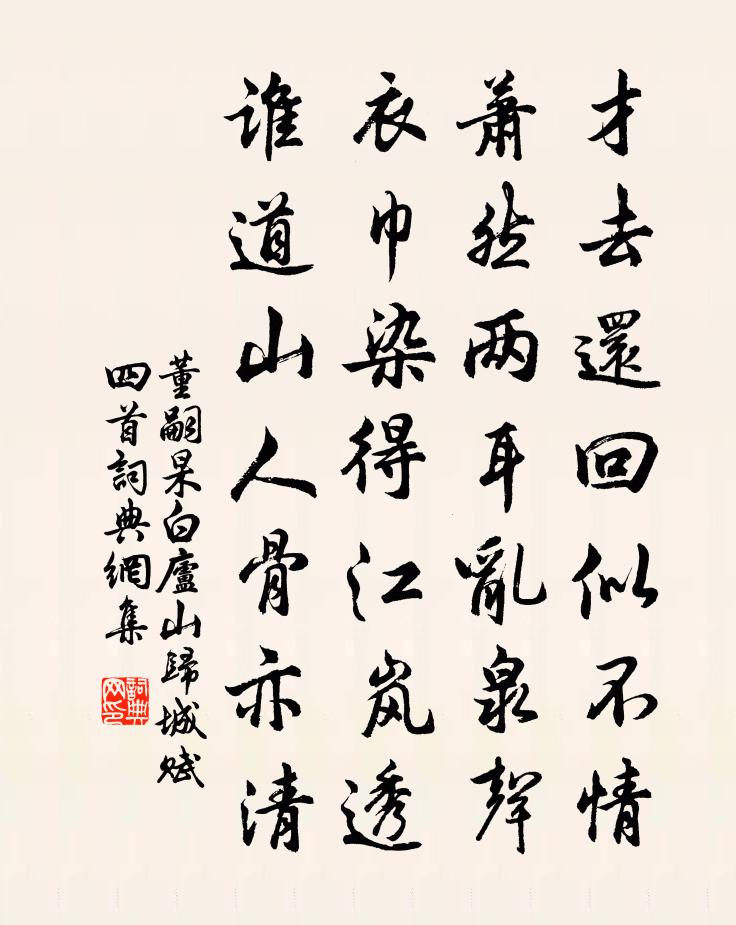 才去還回似不情
蕭然两耳亂泉聲
衣巾染得江岚透
谁道山人骨亦清
董嗣杲白廬山歸城赋
四首詞典網集
詞典网印